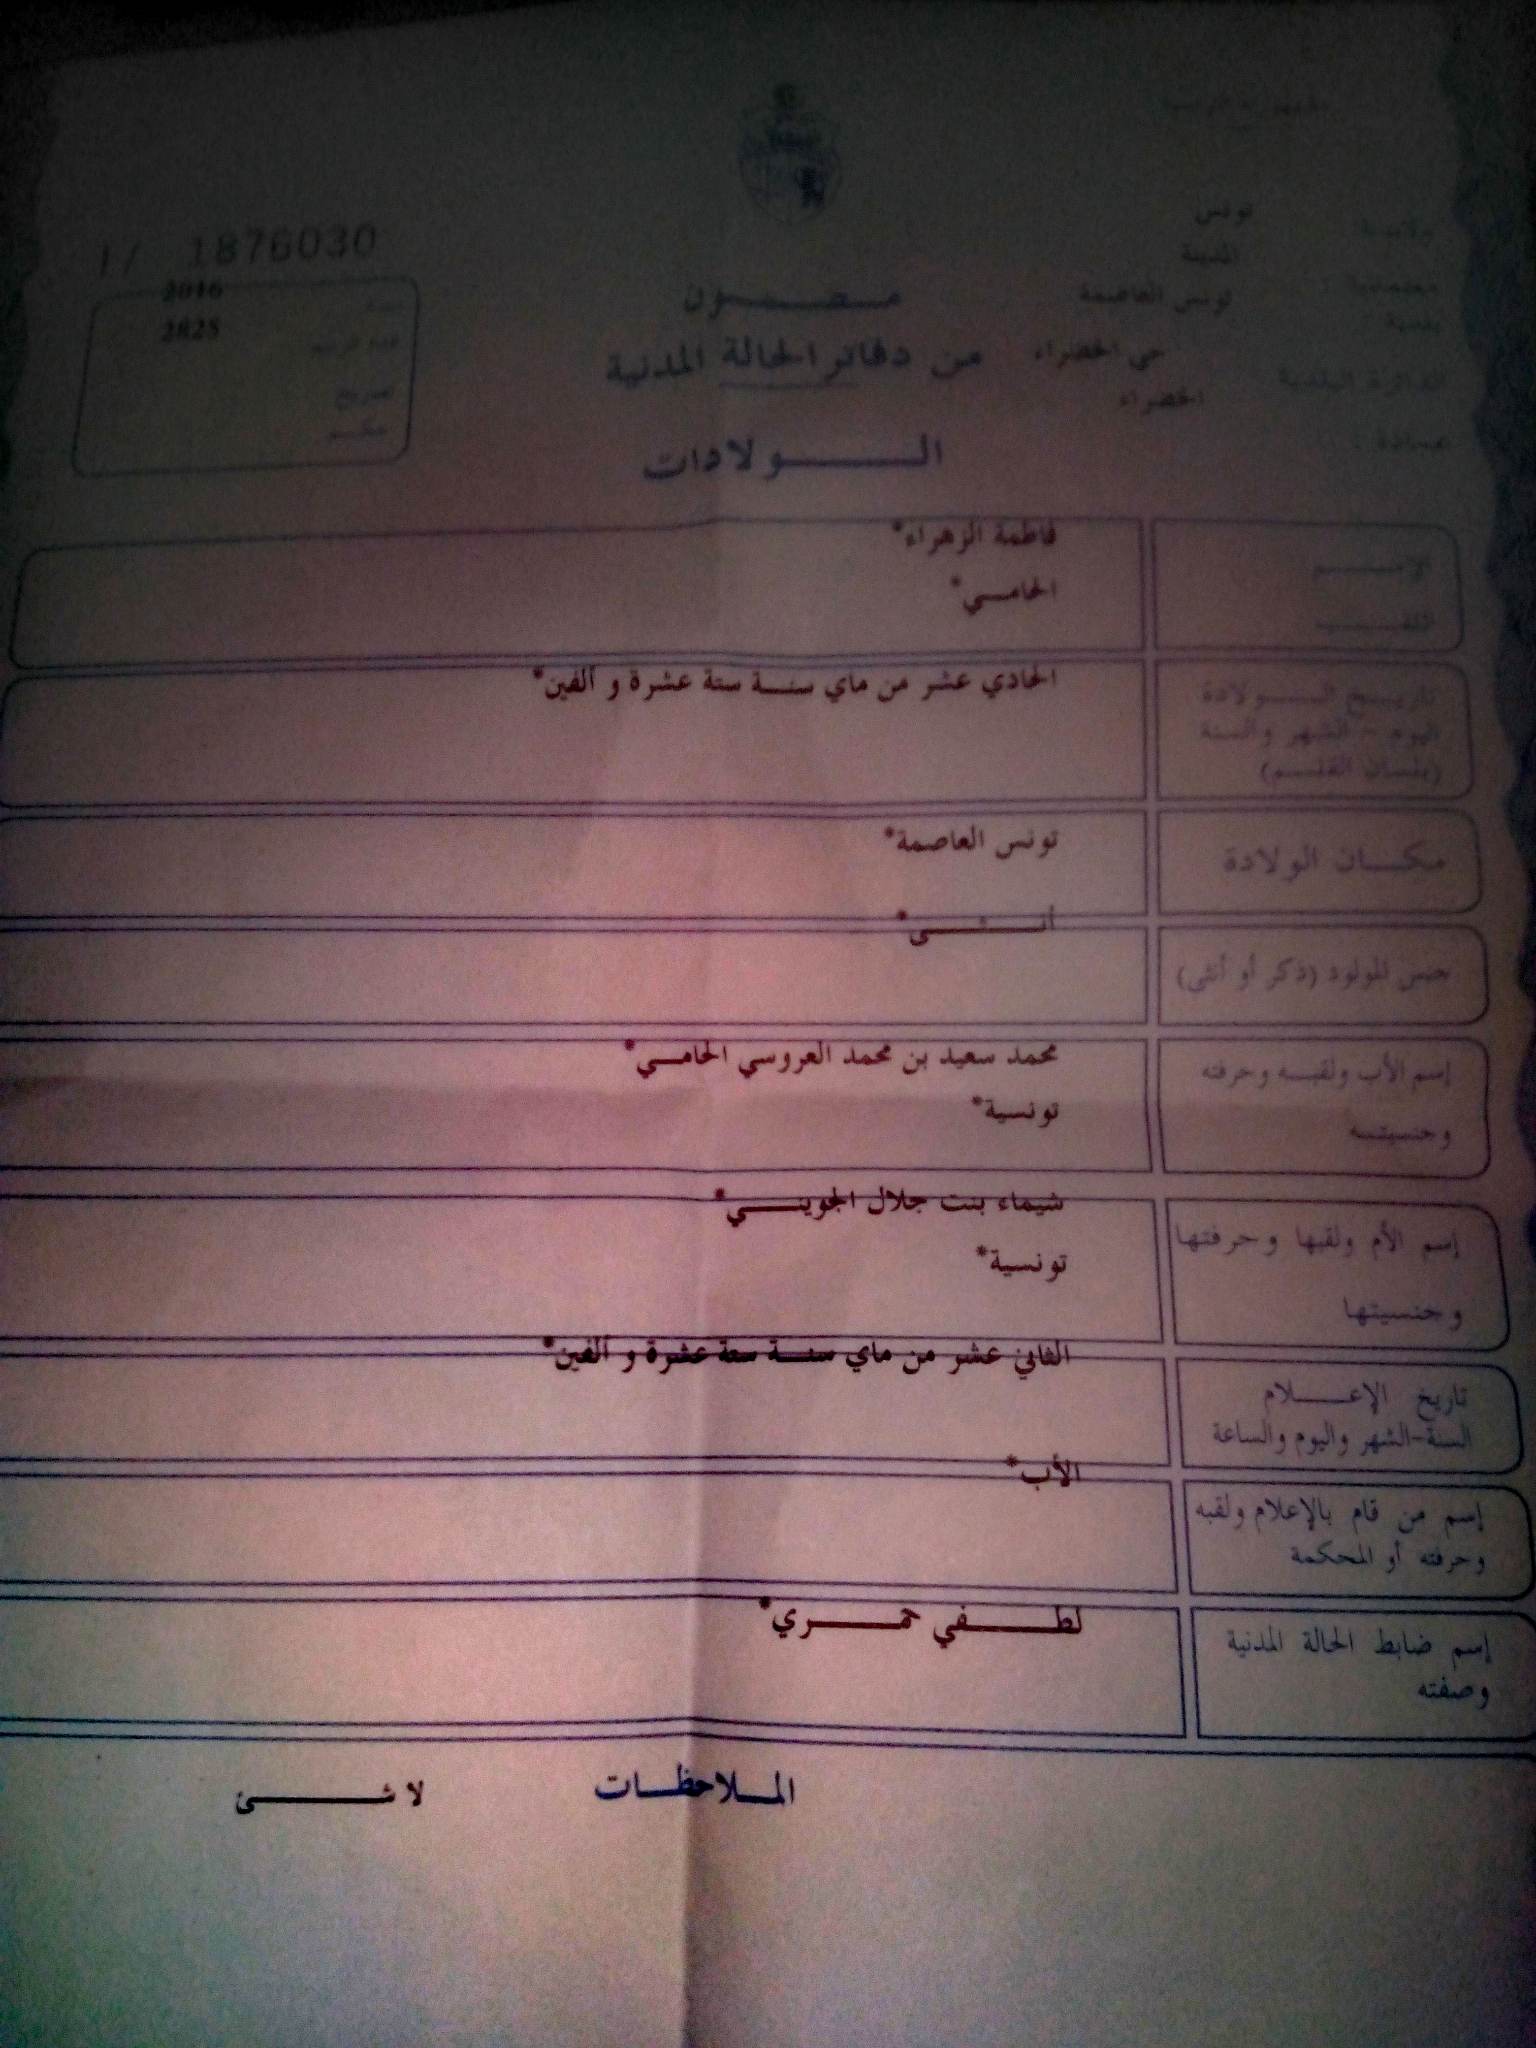 الجمهورية التونسية
ولاية تونس
معتمدية : المدينة
بلدية تونس العاصمة
الدائرة البلدية حي الخضراء
عمادة : الخضراء
1876030
سنة 2016
عدد الرسم 2828
بتاريخ
حكم
مضمون
من دفاتر الحالة المدنية
الولادات
الإسم فاطمة الزهراء*
اللقب الحامي*
تاريخ الولادة الحادي عشر من ماي سنة ستة عشرة و ألفين*
اليوم - الشهر والسنة
(بلسان القلم)
مكان الولادة تونس العاصمة*
جنس المولود (ذكر أو أنثى) أنثى*
إسم الأب ولقبه وحرفته محمد سعيد بن محمد العروسي الحامي*
وجنسيته تونسية*
إسم الأم ولقبها وحرفتها شيماء بنت جلال الجويني*
وجنسيتها تونسية*
تاريخ الإعلام الثاني عشر من ماي سنة ستة عشرة و ألفين*
السنة-الشهر واليوم والساعة
إسم من قام بالإعلام ولقبه الأب*
وحرفته أو المحكمة
إسم ضابط الحالة المدنية لطفي حمري*
وصفته
الملاحظات لا شئ